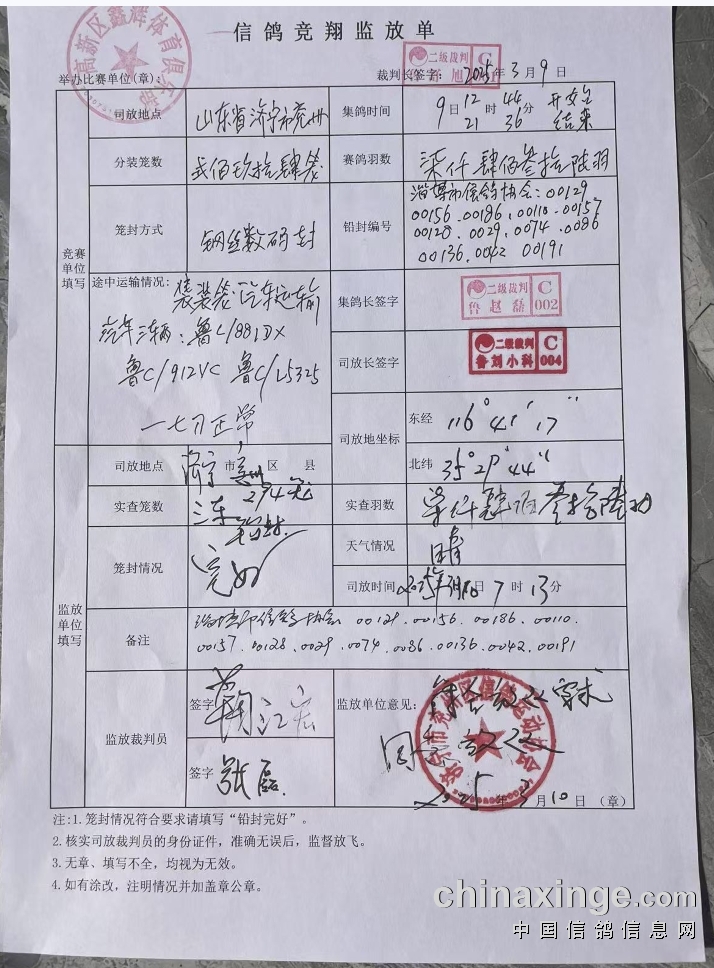 信鸽竞翔监放单
高新区鑫辉体育俱乐部
二级裁判 C
举办比赛单位(章):
裁判长签字: 2025年3月9日
竞赛单位填写
司放地点 山东省济宁市兖州
集鸽时间 9日12时44分开始
21 36 结束
分装笼数 贰佰玖拾肆笼
赛鸽羽数 柒仟肆佰叁拾陆羽
笼封方式 钢丝数码封
铅封编号 淄博市信鸽协会:00129
00156.00186.00110.00157
00128.0029.0074.0086
00136.0042 00191
途中运输情况: 集装笼汽车运输
汽车三辆:鲁C/881DX
鲁C/912VC 鲁C/L5325
一切正常
集鸽长签字 二级裁判 C
鲁赵磊 002
司放长签字 二级裁判 C
鲁刘小科 004
司放地坐标
东经 116°41′17″
北纬 35°29′44″
监放单位填写
司放地点 济宁市兖州区 县
实查笼数 三车294笼
实查羽数 柒仟肆佰叁拾陆羽
笼封情况 铅封完好
天气情况 晴
司放时间 2025年3月10日7时13分
备注 淄博市信鸽协会 00129.00156.00186.00110.
00157.00128.0029.0074.0086.00136.0042.00191
监放裁判员
签字
签字 张磊
监放单位意见: 符合放飞要求
同意放飞
2025年3月10日(章)
注:1.笼封情况符合要求请填写“铅封完好”。
2.核实司放裁判员的身份证件,准确无误后,监督放飞。
3.无章、填写不全,均视为无效。
4.如有涂改,注明情况并加盖章公章。
chinaxinge.com
中国信鸽信息网